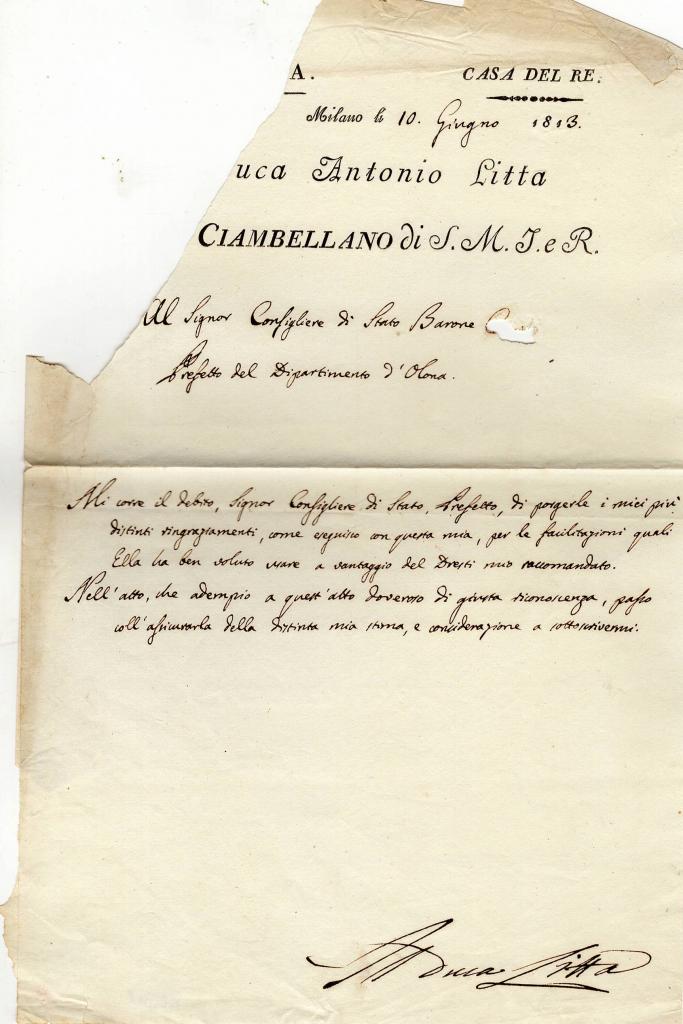 A. CASA DEL RE.
Milano li 10. Giugno 1813.
uca Antonio Litta
CIAMBELLANO di S. M. I. e R.
Al Signor Consigliere di Stato Barone
Prefetto del Dipartimento d'Olona.
Mi corre il debito, Signor Consigliere di Stato, Prefetto, di porgerle i miei più
distinti ringraziamenti, come eseguisco con questa mia, per le facilitazioni quali
Ella ha ben voluto usare a vantaggio del Dresti mio raccomandato.
Nell'atto, che adempio a quest'atto doveroso di giusta riconoscenza, passo
coll'assicurarla della distinta mia stima, e considerazione a sottoscrivermi.
Duca Litta